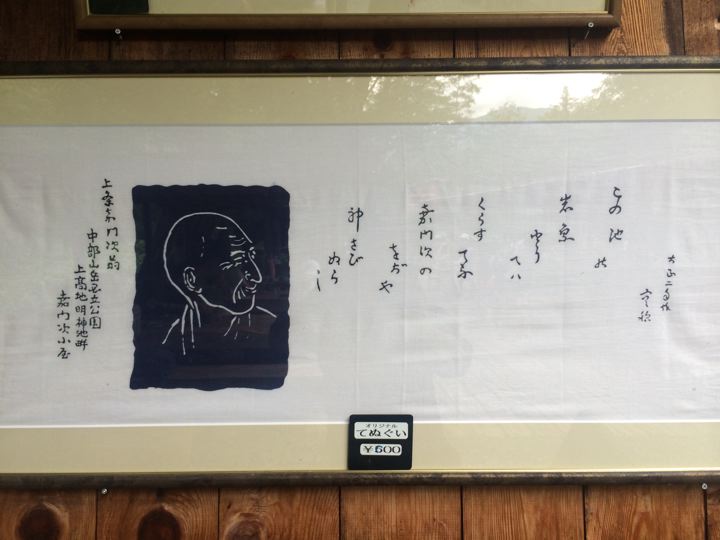 大正二年作
空穂
この池の
岩魚
とりてハ
くらす
てふ
嘉門次の
をぢや
神さび
ぬらし
上條嘉門次翁
中部山岳国立公園
上高地明神池畔
嘉門次小屋
オリジナル
てぬぐい
¥900